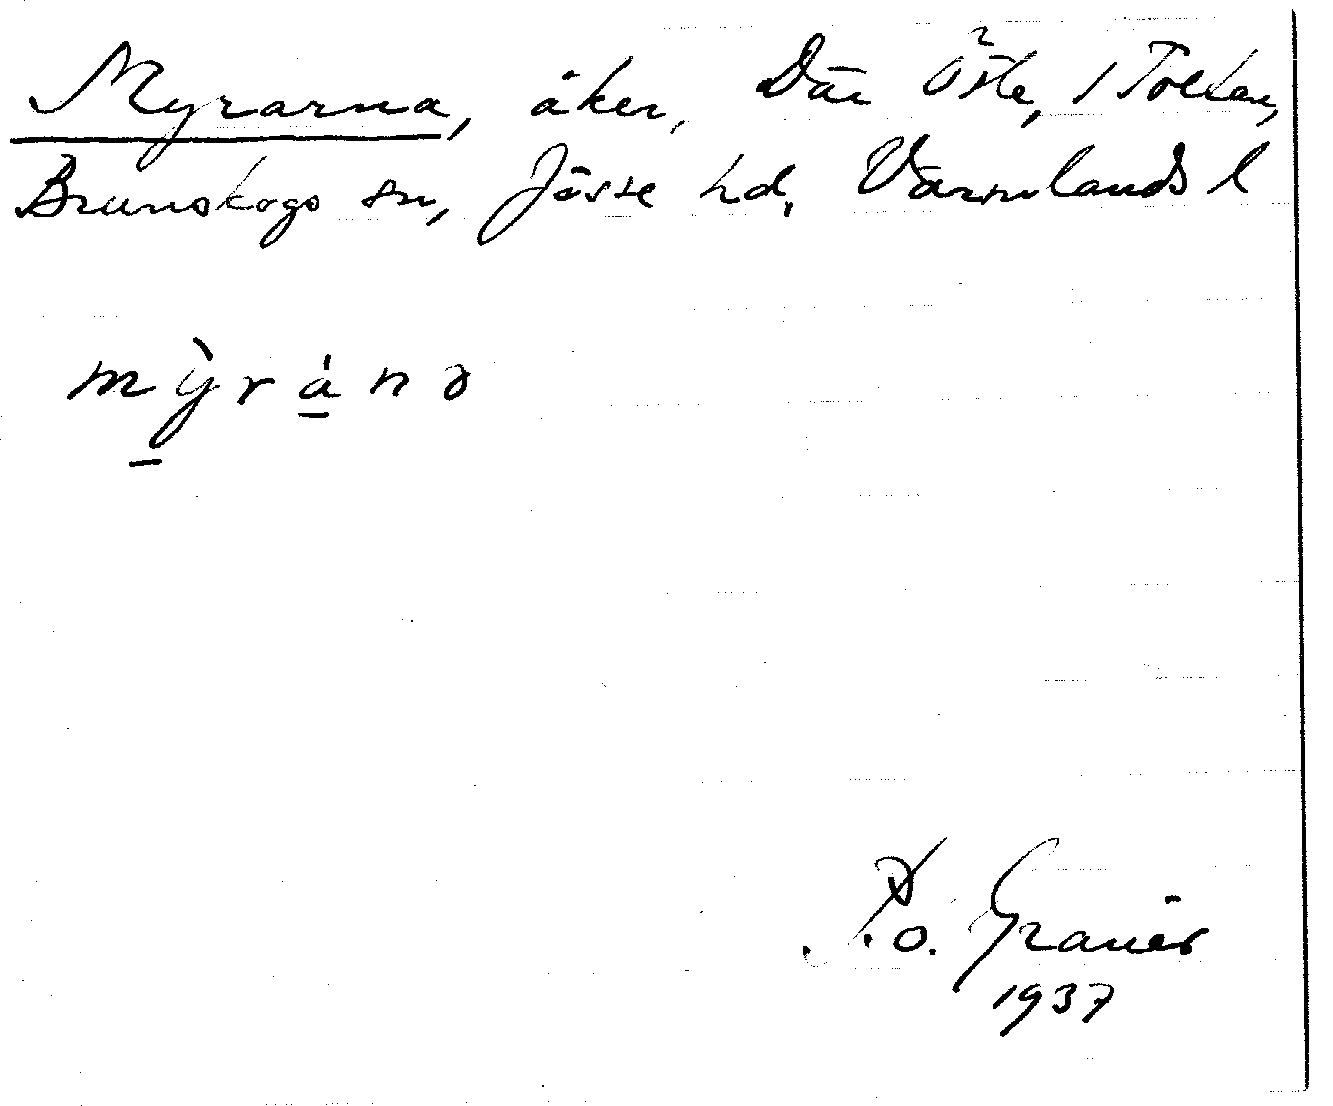 Myrarna, åker, Där Öste, 1 Tolken,
Brunskogs sn, Jösse hd, Värmlands l
mỳránə
R.o. Granér
1937